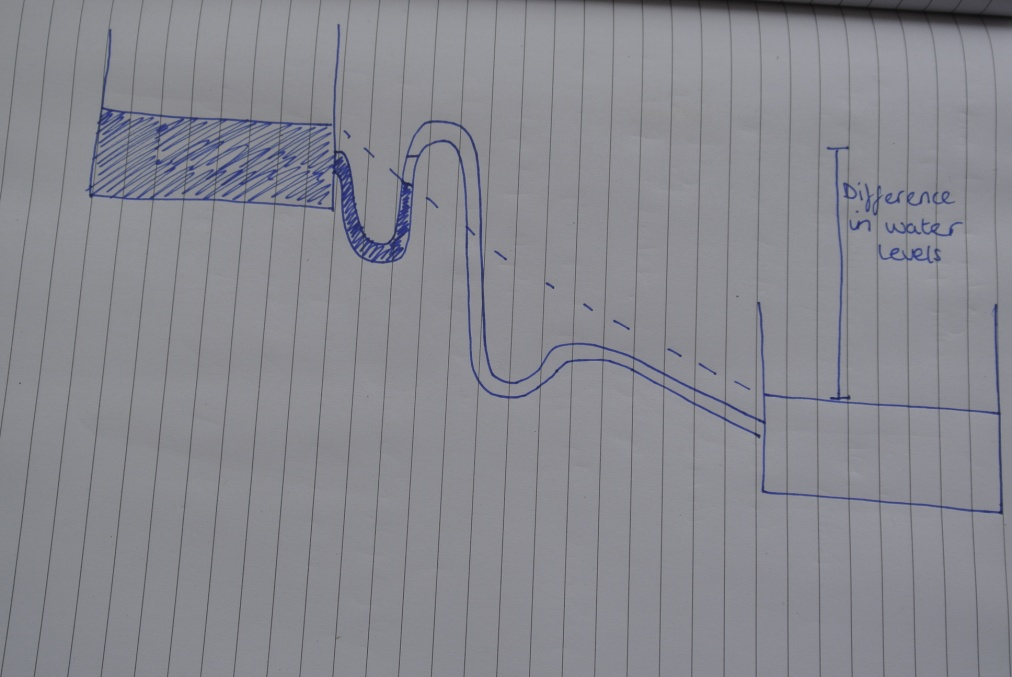 Difference
in water
levels